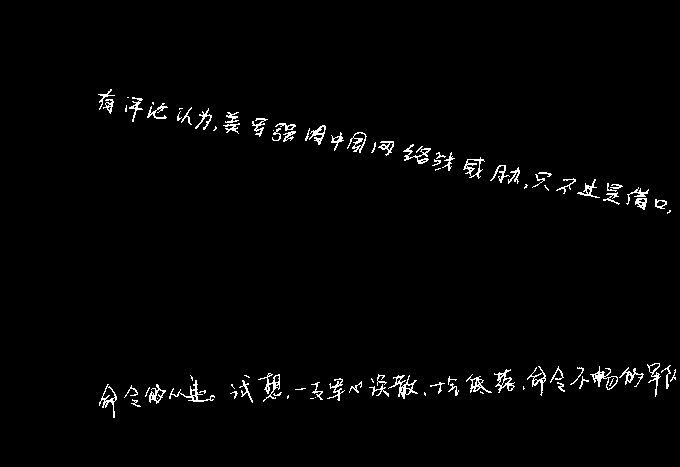 有评论认为,美军强调中国网络战威胁,只不过是借口,
命令的。试想,一支军心涣散,士气低落,命令不畅的军队